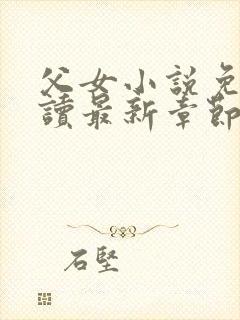 父女小說免
讀最新章節
石堅